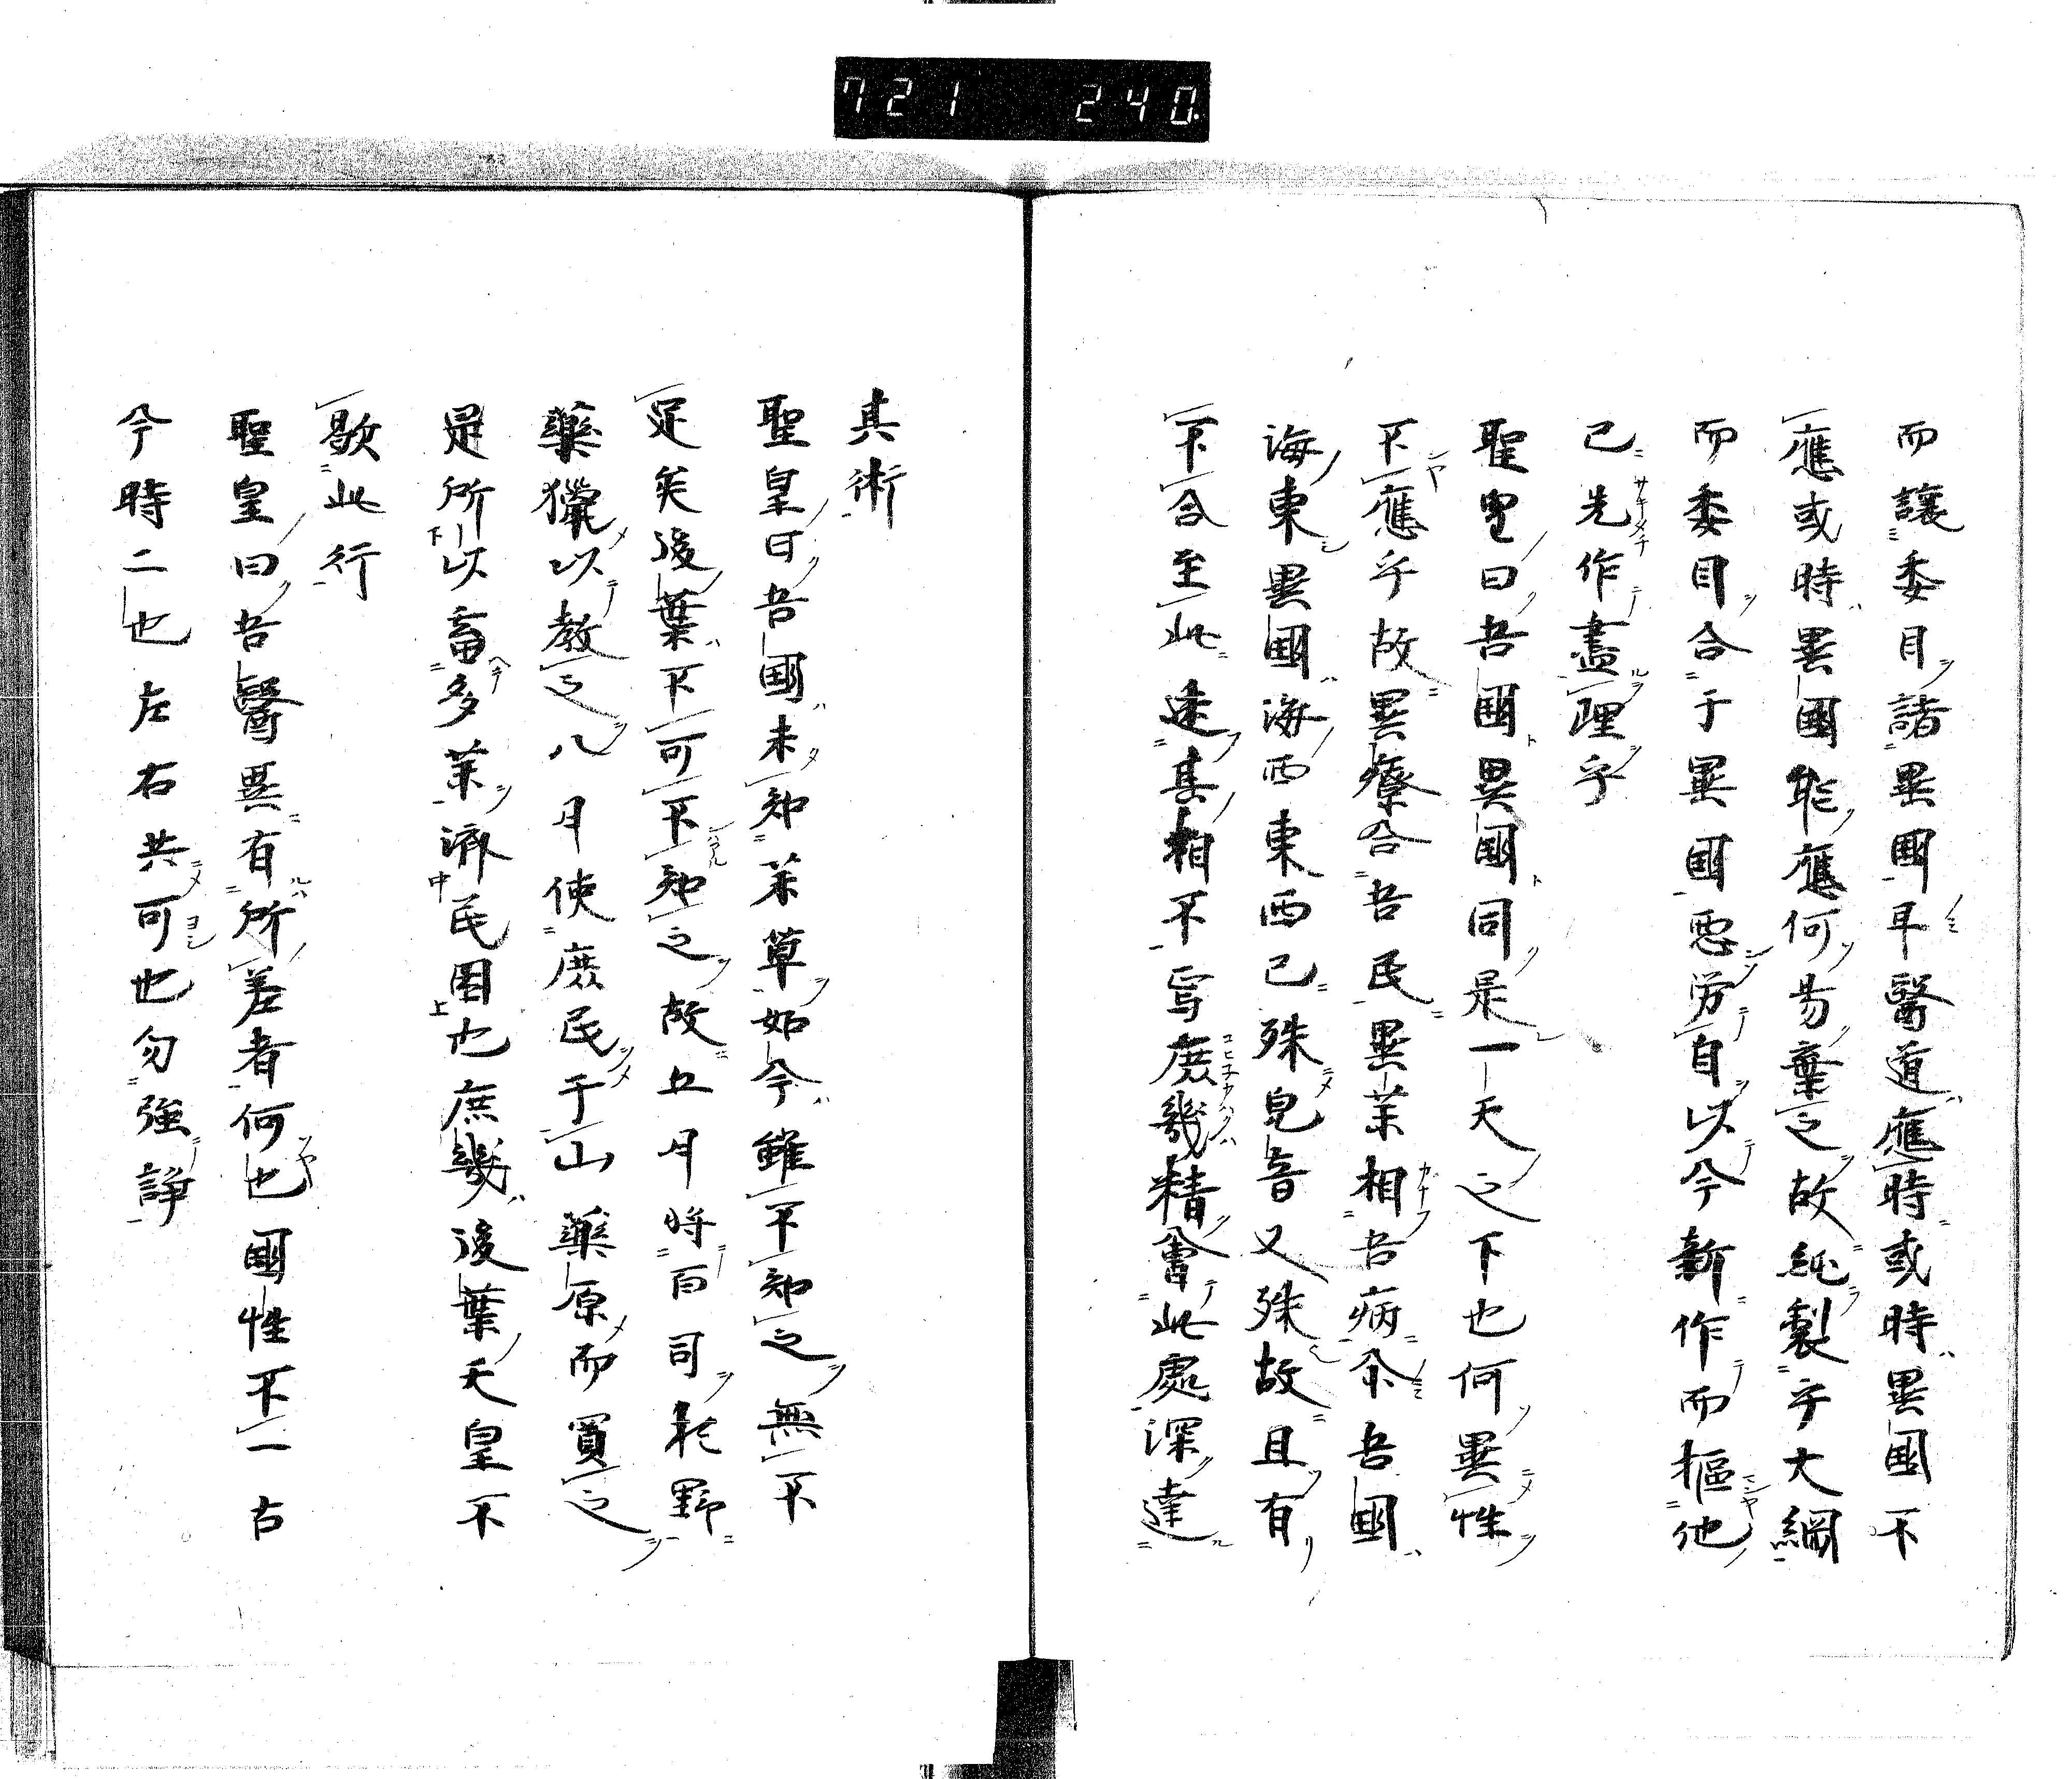 721 240
而讓委目諸異国耳醫道應時或時異國不
應或時異國能應何易棄之故純製乎大綱
而委目合于異國惡労自以今新作而樞他
己先作盡理乎
聖皇曰吾國異國同是一天之下也何異性
不應乎故異療合吾民異薬相吾病余吾國
海東異國海西東西已殊皃音又殊故且有
不合至此迷其相不写庶幾精會此處深達
其術
聖皇曰吾國未知薬草如今雖不知之無不
足矣後葉不可不知之故五月將百司於野
藥獵以教之八月使庶民于山藥原而買之
是所以畜多薬濟民困也庶幾後葉天皇不
歇此行
聖皇曰吾醫異有所差者何也國性不一古
今時二也左右共可也勿強諍